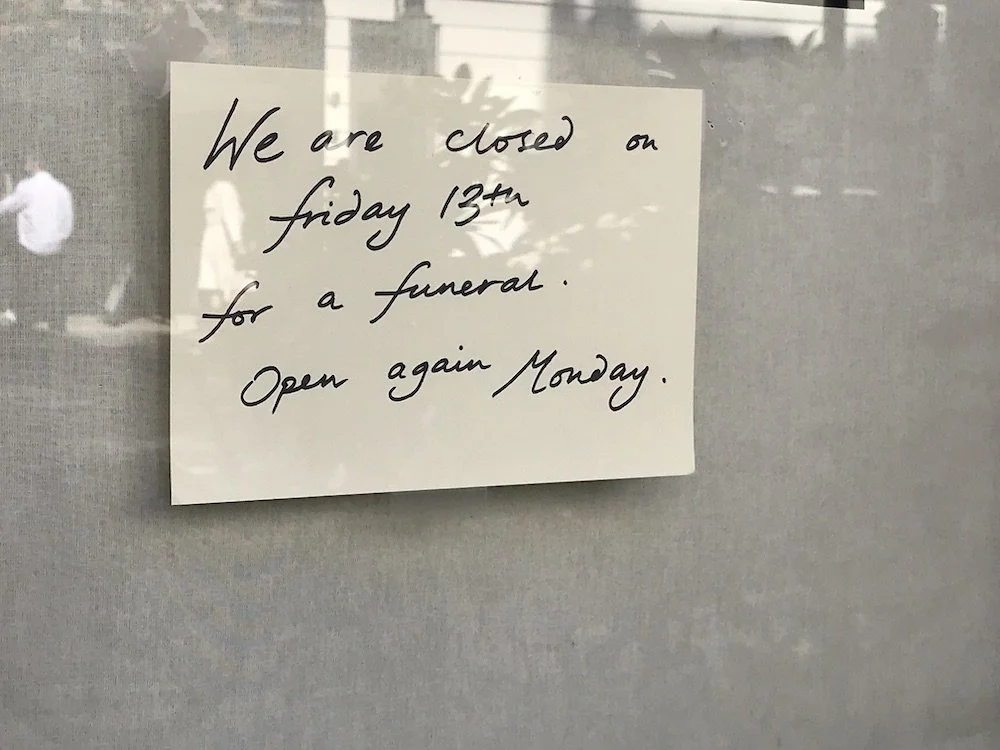 We are closed on
friday 13th
for a funeral.
Open again Monday.